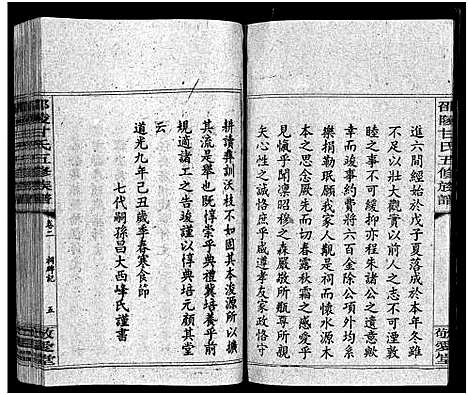 邵陵甘氏五修族譜
敬愛堂
進六間經始於戊子夏落成於本年冬雖
不足以壯大觀實以前人之志不可湮敦
睦之事不可緩抑亦程朱諸公之遺意歟
故竣事約費將六百金除公項外均系
樂捐勒珉願我家人觀是祠而懷水源木
本之思念厥先而切春露秋霜之感愛乎
見愾乎聞凜昭穆之森嚴敬所瓶尊所親
矢心性之誠恪庶乎咸遵孝友家政恪守
耕讀彝訓沃枝不如固其本浚源所以擴
其流是舉也既惇崇乎典禮冀培養乎前
規適諸工之告竣謹以惇典培元顏其堂
云
道光九年己丑歲季春寒食節
七代嗣孫昌大西峰氏謹書
邵陵甘氏五修族譜
卷二
祠碑記
五
敬愛堂